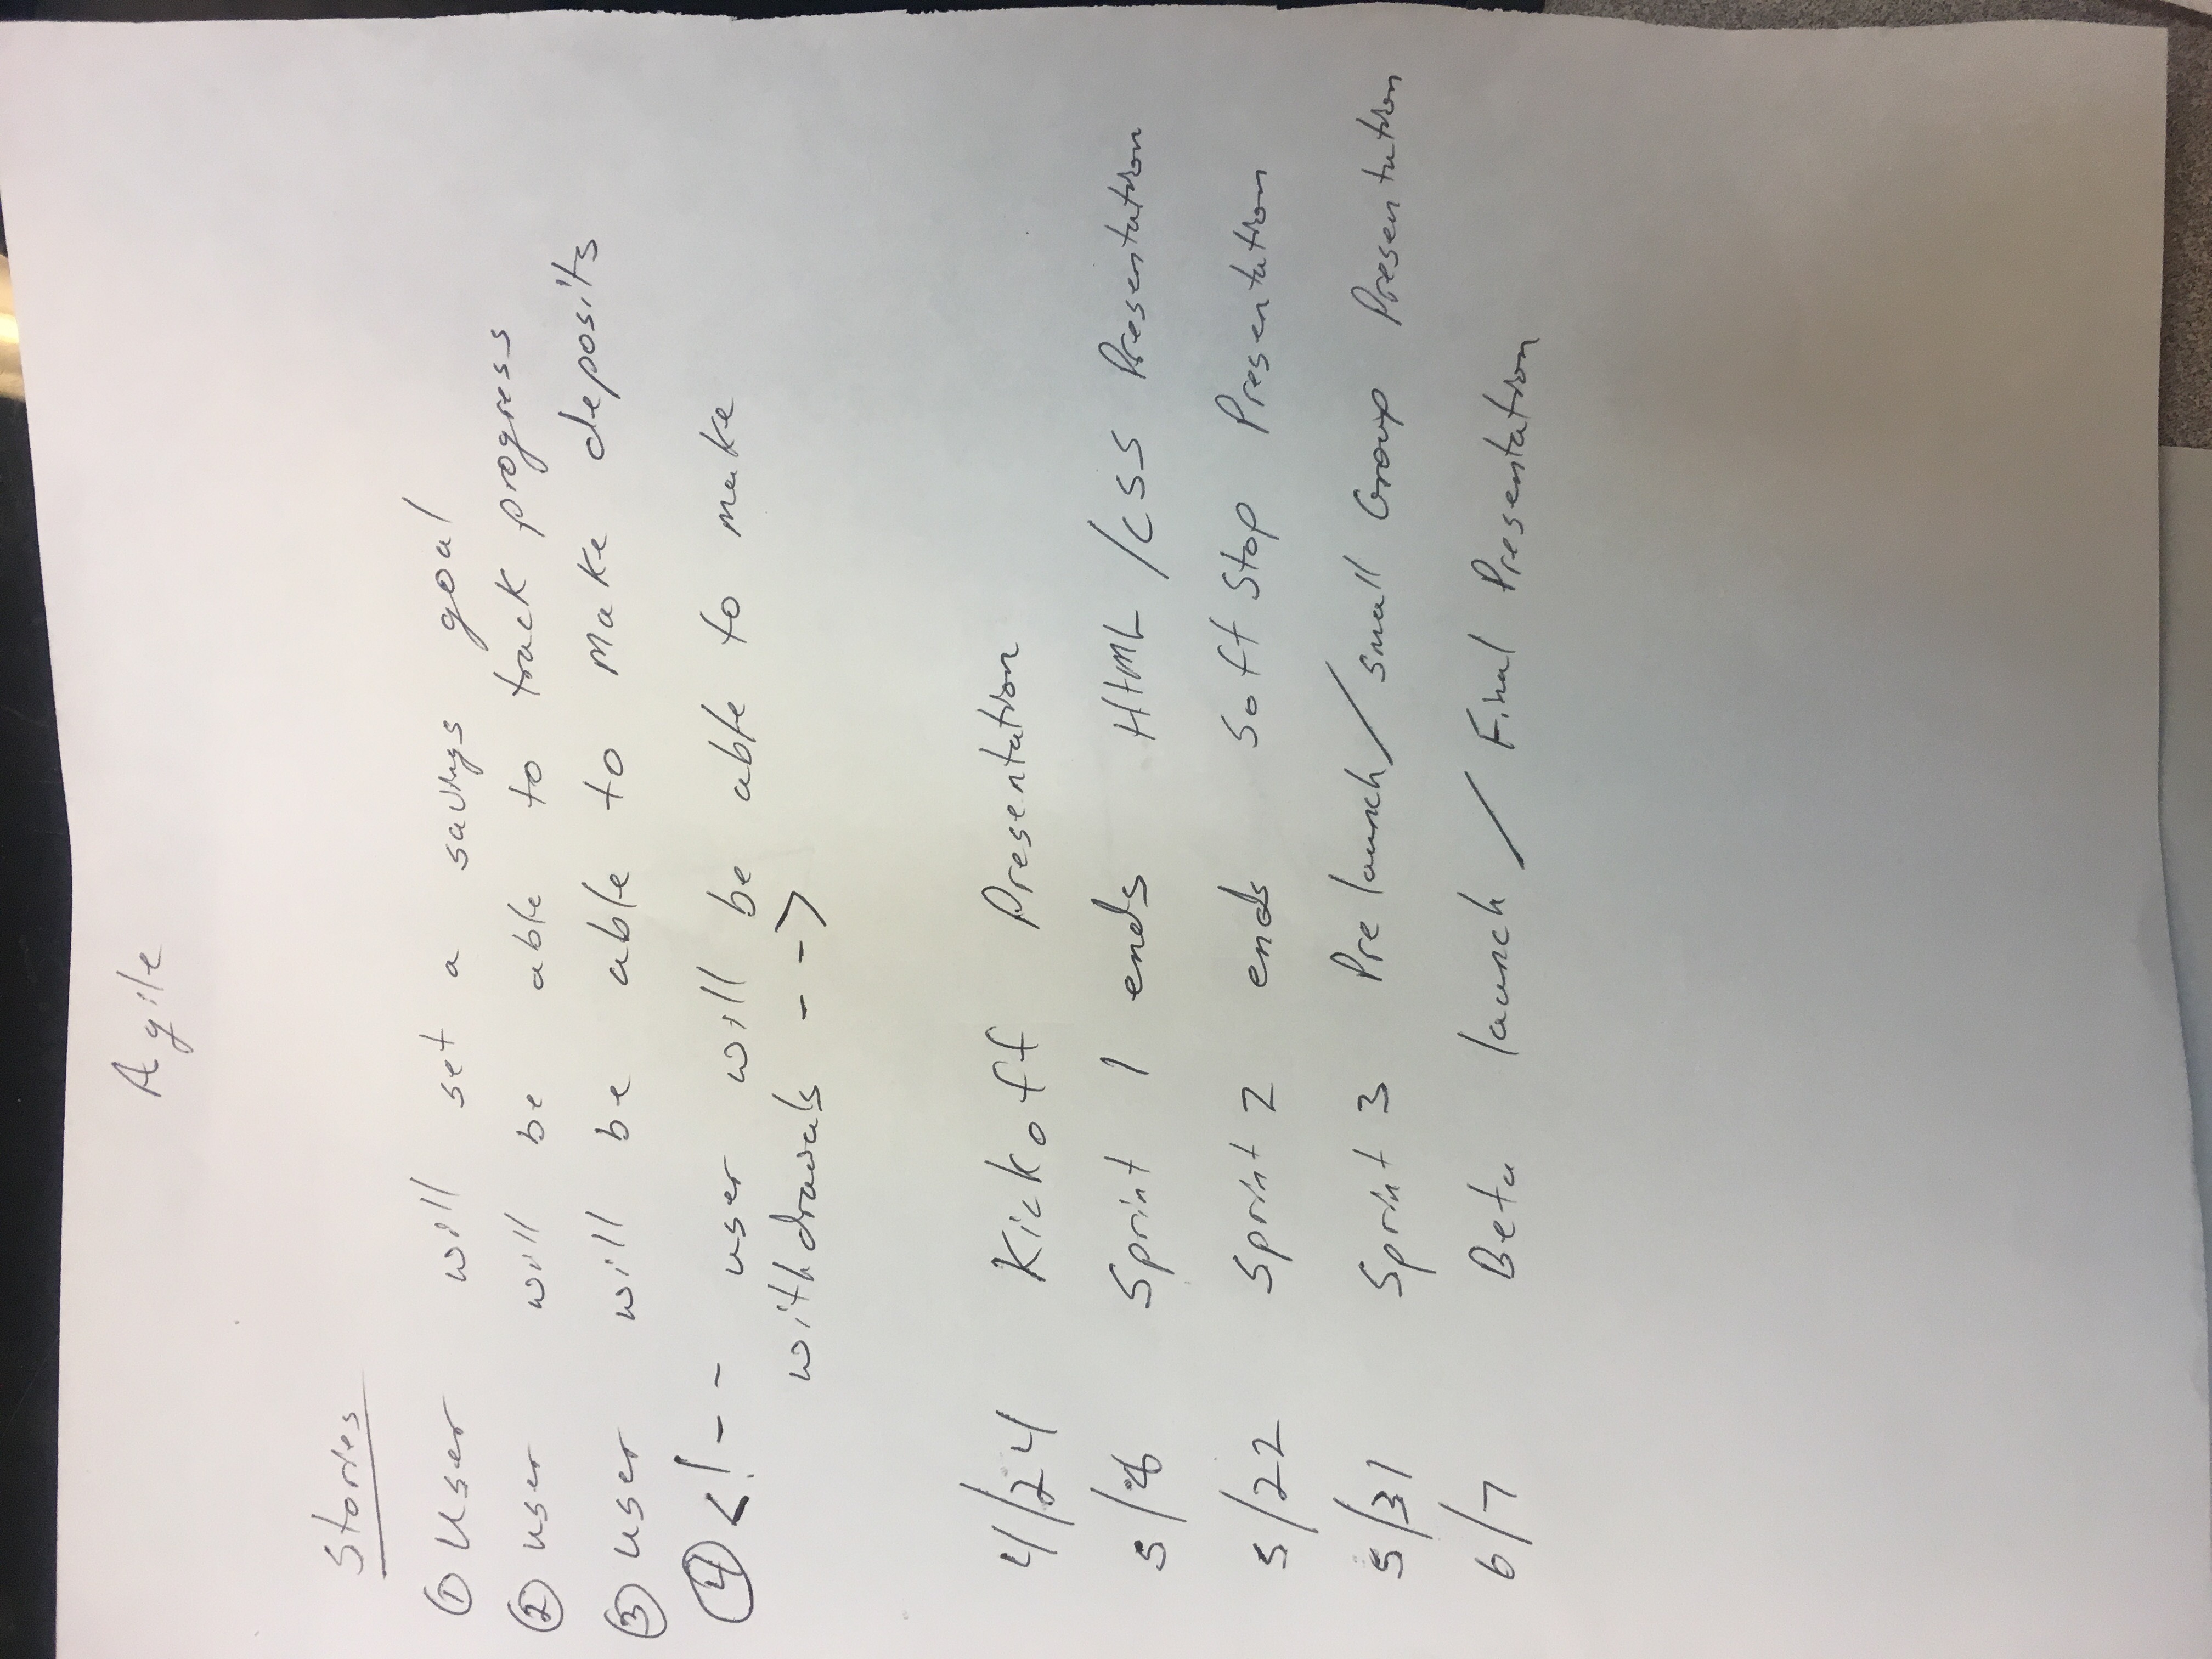 Agile
Stories
① User will set a savings goal
② user will be able to track progress
③ user will be able to make deposits
④ <!-- user will be able to make
withdrawals -->
4/24 Kickoff Presentation
5/8 Sprint 1 ends HTML/CSS Presentation
5/22 Sprint 2 ends Soft Stop Presentation
5/31 Sprint 3 Prelaunch/Small Group Presentation
6/7 Beta launch / Final Presentation